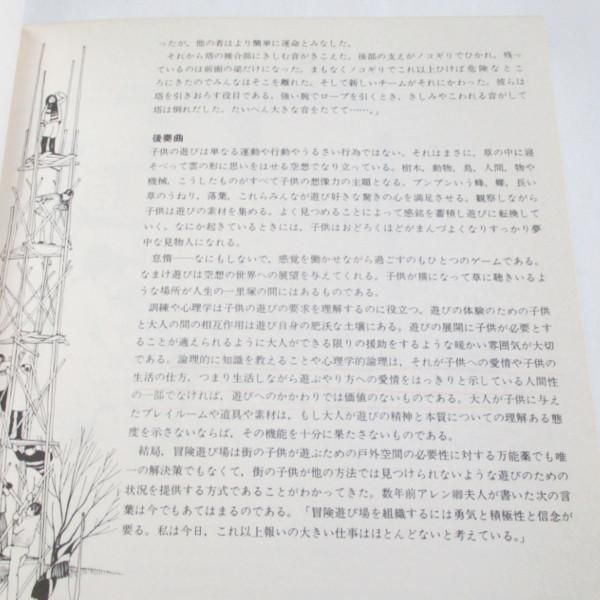 ったが、他の者はより簡単に運命とみなした。
それから塔の接合部にきしむ音がきこえた。後部の支えがノコギリでひかれ、残っ
ているのは前面の梁だけになった。まもなくノコギリでこれ以上ひけば危険なとこ
ろにきたのでみんなはそこを離れた。そして新しいチームがそれにかわった。彼らは
塔を引きおろす役目である。強い腕でロープを引くとき、きしみやこわれる音がして
塔は倒れだした。たいへん大きな音をたてて……。」
後奏曲
子供の遊びは単なる運動や行動やうるさい行為ではない。それはまさに、草の中に寝
そべって雲の形に思いをはせる空想でなり立っている。樹木、動物、鳥、人間、物や
機械、こうしたものがすべて子供の想像力の主題となる。ブンブンいう蜂、蝶、長い
草のうねり、落葉、これらみんなが遊び好きな驚きの心を満足させる。観察しながら
子供は遊びの素材を集める。よく見つめることによって感銘を蓄積し遊びに転換して
いく。なにか起きているときには、子供はおどろくほどがまんづよくなりすっかり夢
中な見物人になれる。
怠惰——なにもしないで、感覚を働かせながら過ごすのもひとつのゲームである。
なまけ遊びは空想の世界への展望を与えてくれる。子供が横になって草に聴きいるよ
うな場所が人生の一里塚の間にはあるものである。
訓練や心理学は子供の遊びの要求を理解するのに役立つ。遊びの体験のための子供
と大人の間の相互作用は遊び自身の肥沃な土壌にある。遊びの展開に子供が必要とす
ることが適えられるように大人ができる限りの援助をするような暖かい雰囲気が大切
である。論理的に知識を教えることや心理学的論理は、それが子供への愛情や子供の
生活の仕方、つまり生活しながら遊ぶやり方への愛情をはっきりと示している人間性
の一部でなければ、遊びへのかかわりでは価値のないものである。大人が子供に与え
たプレイルームや道具や素材は、もし大人が遊びの精神と本質についての理解ある態
度を示さないならば、その機能を十分に果たさないものである。
結局、冒険遊び場は街の子供が遊ぶための戸外空間の必要性に対する万能薬でも唯
一の解決策でもなくて、街の子供が他の方法では見つけられないような遊びのための
状況を提供する方式であることがわかってきた。数年前アレン卿夫人が書いた次の言
葉は今でもあてはまるのである。「冒険遊び場を組織するには勇気と積極性と信念が
要る。私は今日、これ以上報いの大きい仕事はほとんどないと考えている。」